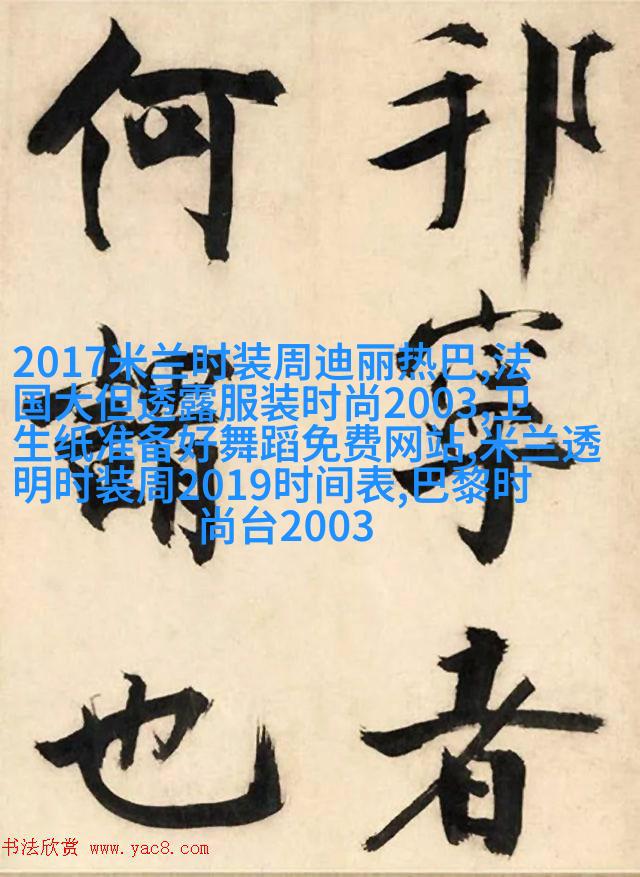 邦寧者
何謂也
2017米兰时装周迪丽热巴,法
国大但透露服装时尚2003,卫
生纸准备好舞蹈免费网站,米兰透
明时装周2019时间表,巴黎时
尚台2003
书法欣赏 www.yac8.com